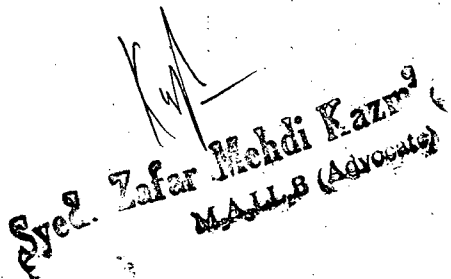 Syed. Zafar Mehdi Kazmi
M,A,LL,B (Advocate)